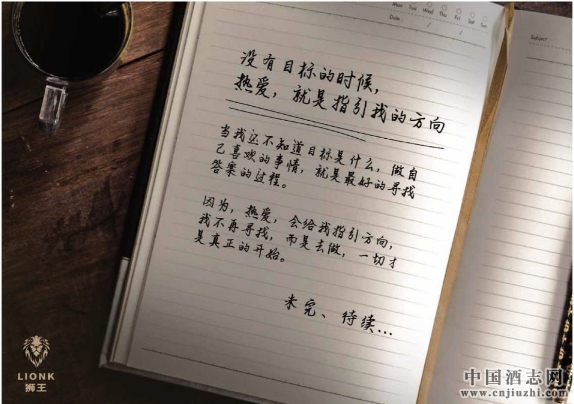 Mon Tue Wed Thu Fri Sat Sun
Date / /
Subject:
没有目标的时候，
热爱，就是指引我的方向
当我还不知道目标是什么，做自
己喜欢的事情，就是最好的寻找
答案的过程。
因为，热爱，会给我指引方向，
我不再寻找，而是去做，一切才
是真正的开始。
未完、待续...
LIONK
狮王
中国酒志网
www.cnjiuzhi.com